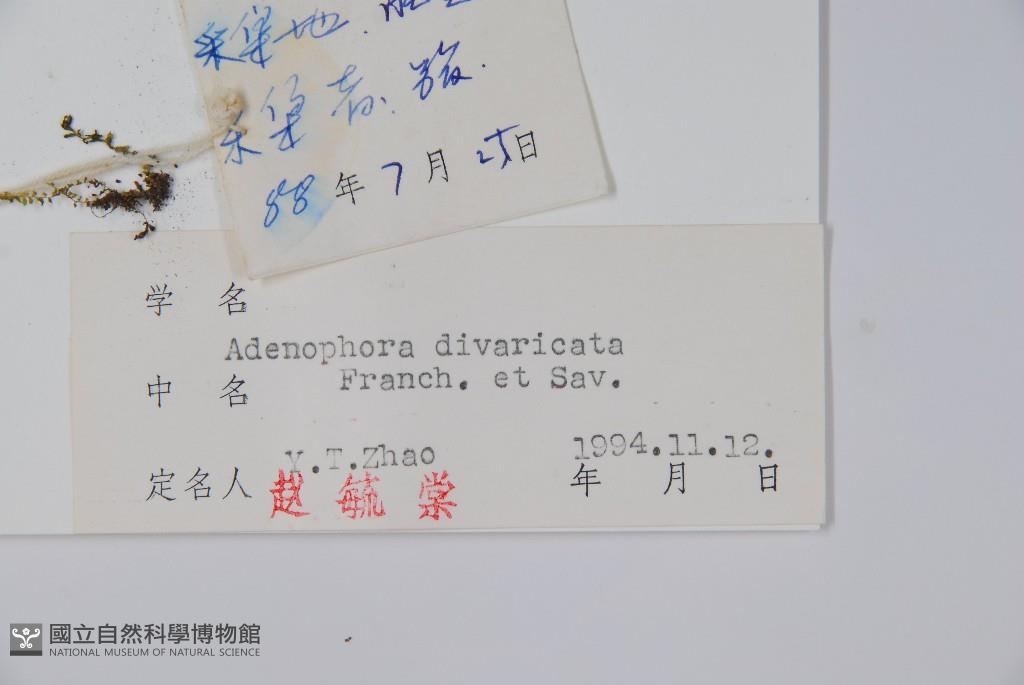 采集地.
采集者.
88年7月25日
学名
Adenophora divaricata
Franch. et Sav.
中名
Y.T.Zhao 1994.11.12.
定名人 赵毓棠 年 月 日
國立自然科學博物館
NATIONAL MUSEUM OF NATURAL SCIENCE